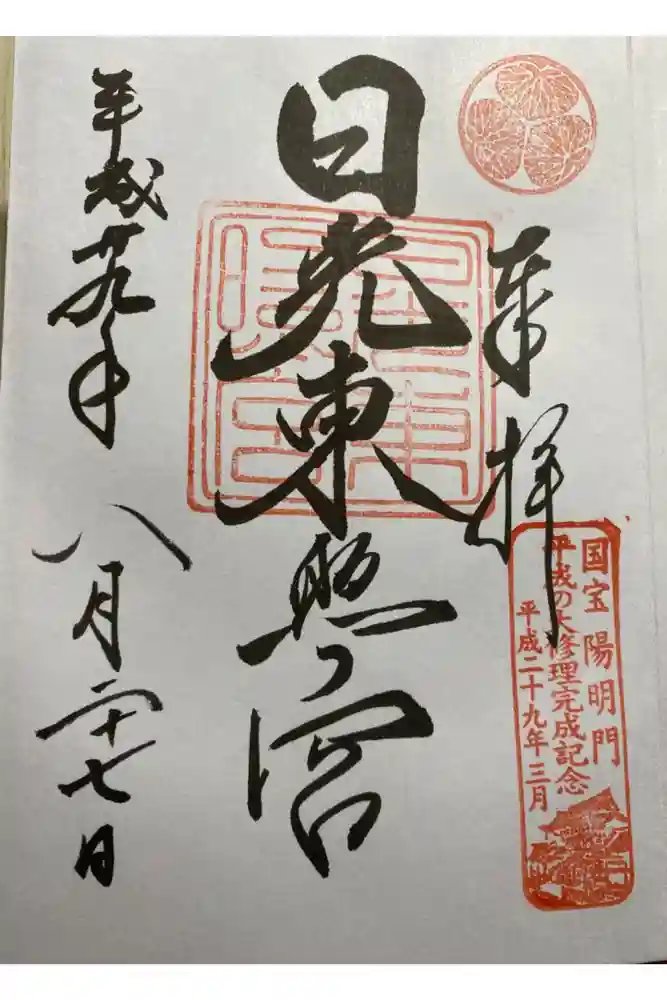 奉拝
国宝 陽明門
平成の大修理完成記念
平成二十九年三月
日光東照宮
平成廿九年 八月二十七日